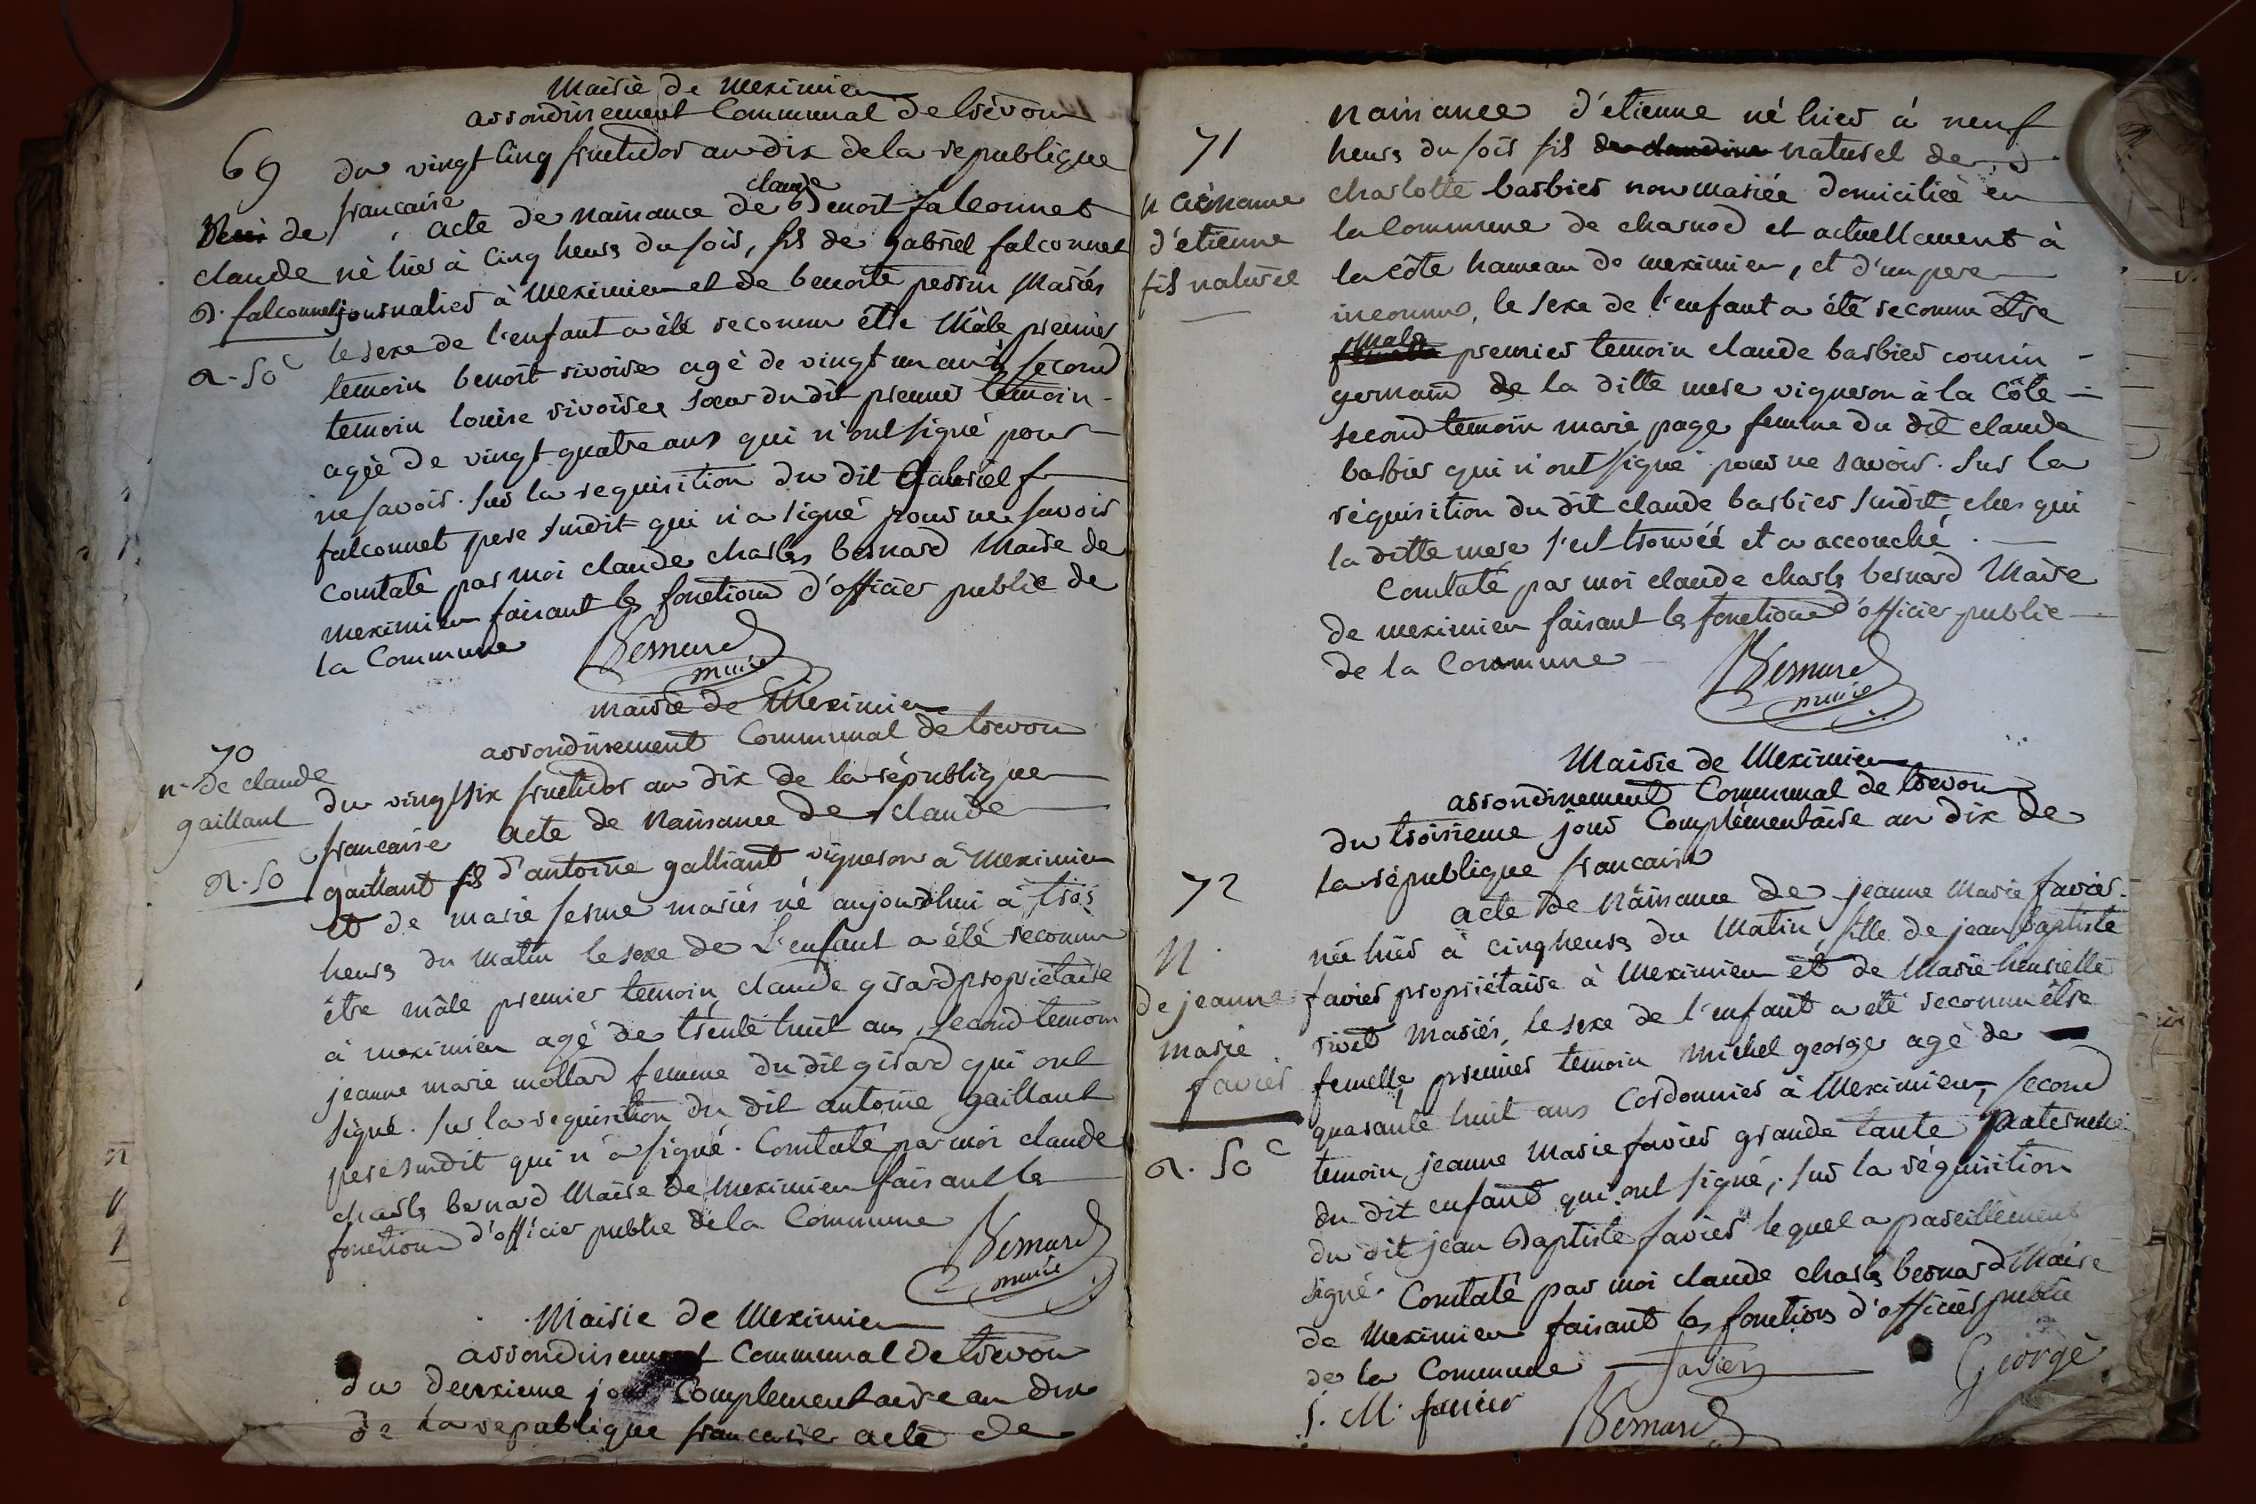 Mairie de Meximieu
arrondissement Communal de trévoux
69
du vingt cinq fructidor an dix de la republique
française
claude
acte de naissance de Benoit falconnet
de
claude
B. falconnet
n. 50 c
né hier à cinq heurs du soir, fils de gabriel falconnet
journalier à Meximieu et de benoite perrin Mariés
le sexe de l'enfant a été reconnu être Mâle premier
temoin benoit rivoire agé de vingt un ans, second
temoin louise rivoire soeur du dit premier temoin
agée de vingt quatre ans qui n'ont signé pour
ne savoir. sur la requisition du dit Gabriel f
falconnet pere susdit qui n'a signé pour ne savoir
Constaté par moi claude charles bernard Maire de
meximieu faisant les fonctions d'officier public de
la Commune
Bernard
maire
mairie de Meximieu
arrondissement Communal de trevoux
70
n. de claude
gaillant
n. 50 c
du vingt six fructidor an dix de la république
française acte de Naissance de claude
gaillant fils d'antoine galliant vigneron à Meximieu
et de marie serme mariés né aujourdhui à trois
heurs du Matin le sexe de L'enfant a été reconnu
être mâle premier temoin claude girard propriétaire
à meximieu agé de trente huit ans, second temoin
jeanne marie mollard femme du dit girard qui ont
signé. sur la requisition du dit antoine gaillant
pere susdit qui n'a signé. Constaté par moi claude
charls bernard Maire de meximieu faisant les
fonctions d'officier public de la Commune
Bernard
maire
Mairie de Meximieu
arrondissement Communal de trevoux
du deuxieme jour Complementaire an dix
de la republique française acte de
71
n
d'etienne
fils naturel
naissance d'étienne né hier à neuf
heurs du soir fils de claudine naturel de
charlotte barbier non mariée domiciliée en
la Commune de charnod et actuellement à
la côte hameau de meximieu, et d'un pere
inconnu, le sexe de l'enfant a été reconnu être
male
femelle premier temoin claude barbier cousin
germain de la ditte mere vigneron à la Côte
second temoin marie page femme du dit claude
barbier qui n'ont signé pour ne savoir. sur la
réquisition du dit claude barbier susdit ches qui
la ditte mere s'est trouvéé et a accouché.
Constaté par moi claude charls bernard Maire
de meximieu faisant les fonctions d'officier public
de la Commune
Bernard
maire
Mairie de Meximieu
arrondissement Communal de trevoux
du troisieme jour Complémentaire an dix de
la république francaise
72
N.
de jeanne
marie
favier
n. 50 c
acte de Naissance de jeanne Marie favier
née hier à cinq heurs du Matin fille de jean Baptiste
favier propriétaire à Meximieu et de Marie henriette
rivet Mariés, le sexe de l'enfant a été reconnu être
femelle, premier temoin michel george agé de
quarante huit ans Cordonnier à Meximieu, second
temoin jeanne Marie favier grande tante paternelle
du dit enfant qui ont signé, sur la réquisition
du dit jean Baptiste favier lequel a pareillement
signé. Constaté par moi claude charls bernard Maire
de Meximieu faisant les fonctions d'officier public
de la Commune favier Géorgè
j. M. favier
Bernard